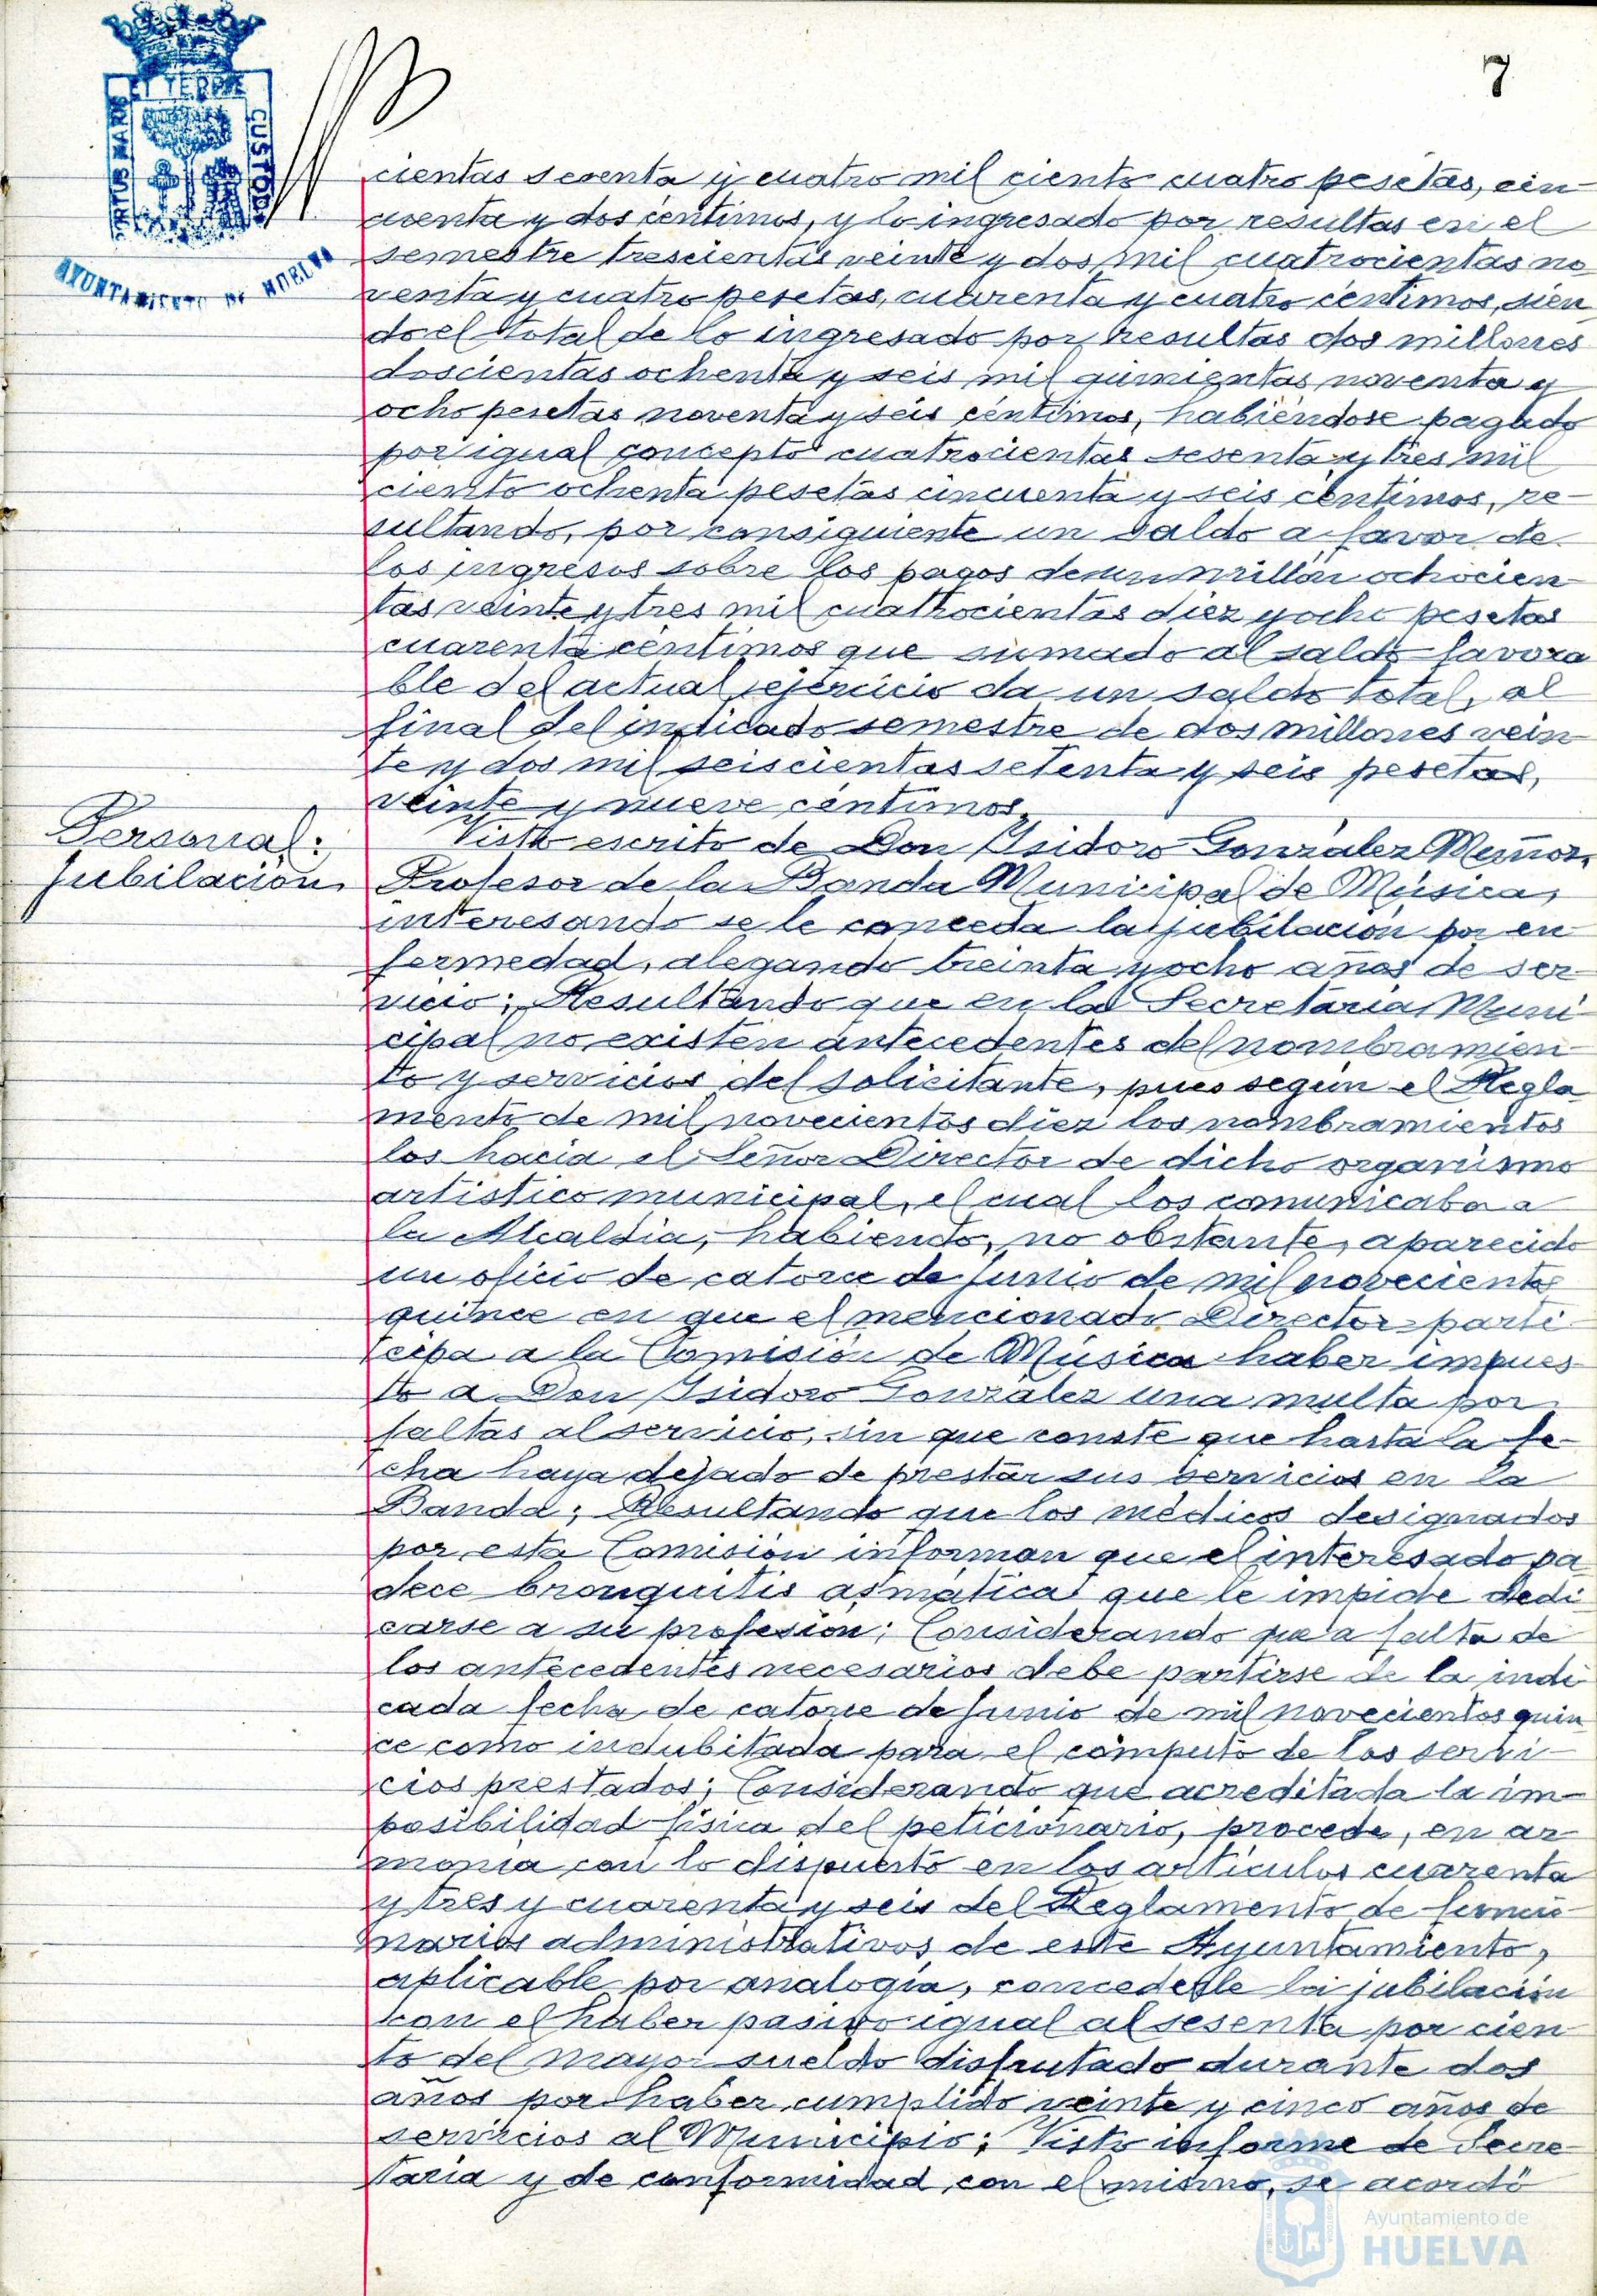 7
ET TERRÆ
PORTUS MARIS
CUSTODIA
AYUNTAMIENTO DE HUELVA
cientas sesenta y cuatro mil ciento cuatro pesetas, cin
cuenta y dos centimos, y lo ingresado por resultas en el
semestre trescientas veinte y dos mil cuatrocientas no
venta y cuatro pesetas, cuarenta y cuatro centimos, sien
do el total de lo ingresado por resultas dos millones
doscientas ochenta y seis mil quinientas noventa y
ocho pesetas noventa y seis céntimos, habiéndose pagado
por igual concepto cuatrocientas sesenta y tres mil
ciento ochenta pesetas cincuenta y seis céntimos, re-
sultando, por consiguiente un saldo a favor de
los ingresos sobre los pagos de un millón ochocien
tas veinte y tres mil cuatrocientas diez y ocho pesetas
cuarenta céntimos que sumado al saldo favora
ble del actual ejercicio da un saldo total, al
final del indicado semestre de dos millones vein
te y dos mil seiscientas setenta y seis pesetas,
veinte y nueve céntimos.
Personal:
Jubilación.
Visto escrito de Don Isidoro González
Profesor de la Banda Municipal de Música,
interesando se le conceda la jubilación por en
fermedad, alegando treinta y ocho años de ser-
vicio; Resultando que en la Secretaría Muni
cipal no existen antecedentes del nombramien
to y servicios del solicitante, pues según el Regla
mento de mil novecientos diez los nombramientos
los hacía el Señor Director de dicho organismo
artístico municipal, el cual los comunicaba a
la Alcaldía, habiendo, no obstante, aparecido
un oficio de catorce de Junio de mil novecientos
quince en que el mencionado Director parti
cipa a la Comisión de Música haber impues
to a Don Isidoro González una multa por
faltas al servicio, sin que conste que hasta la fe-
cha haya dejado de prestar sus servicios en la
Banda; Resultando que los médicos designados
por esta Comisión informan que el interesado pa
dece bronquitis asmática que le impide dedi
carse a su profesión; Considerando que a falta de
los antecedentes necesarios debe partirse de la indi
cada fecha de catorce de Junio de mil novecientos quin
ce como indubitada para el cómputo de los servi-
cios prestados; Considerando que acreditada la im-
posibilidad física del peticionario, procede, en ar
monía con lo dispuesto en los artículos cuarenta
y tres y cuarenta y seis del Reglamento de funcio
narios administrativos de este Ayuntamiento,
aplicable por analogía, concederle la jubilación
con el haber pasivo igual al sesenta por cien
to del mayor sueldo disfrutado durante dos
años por haber cumplido veinte y cinco años de
servicios al Municipio; Visto informe de Secre
taría y de conformidad con el mismo, se acordó
Ayuntamiento de
HUELVA